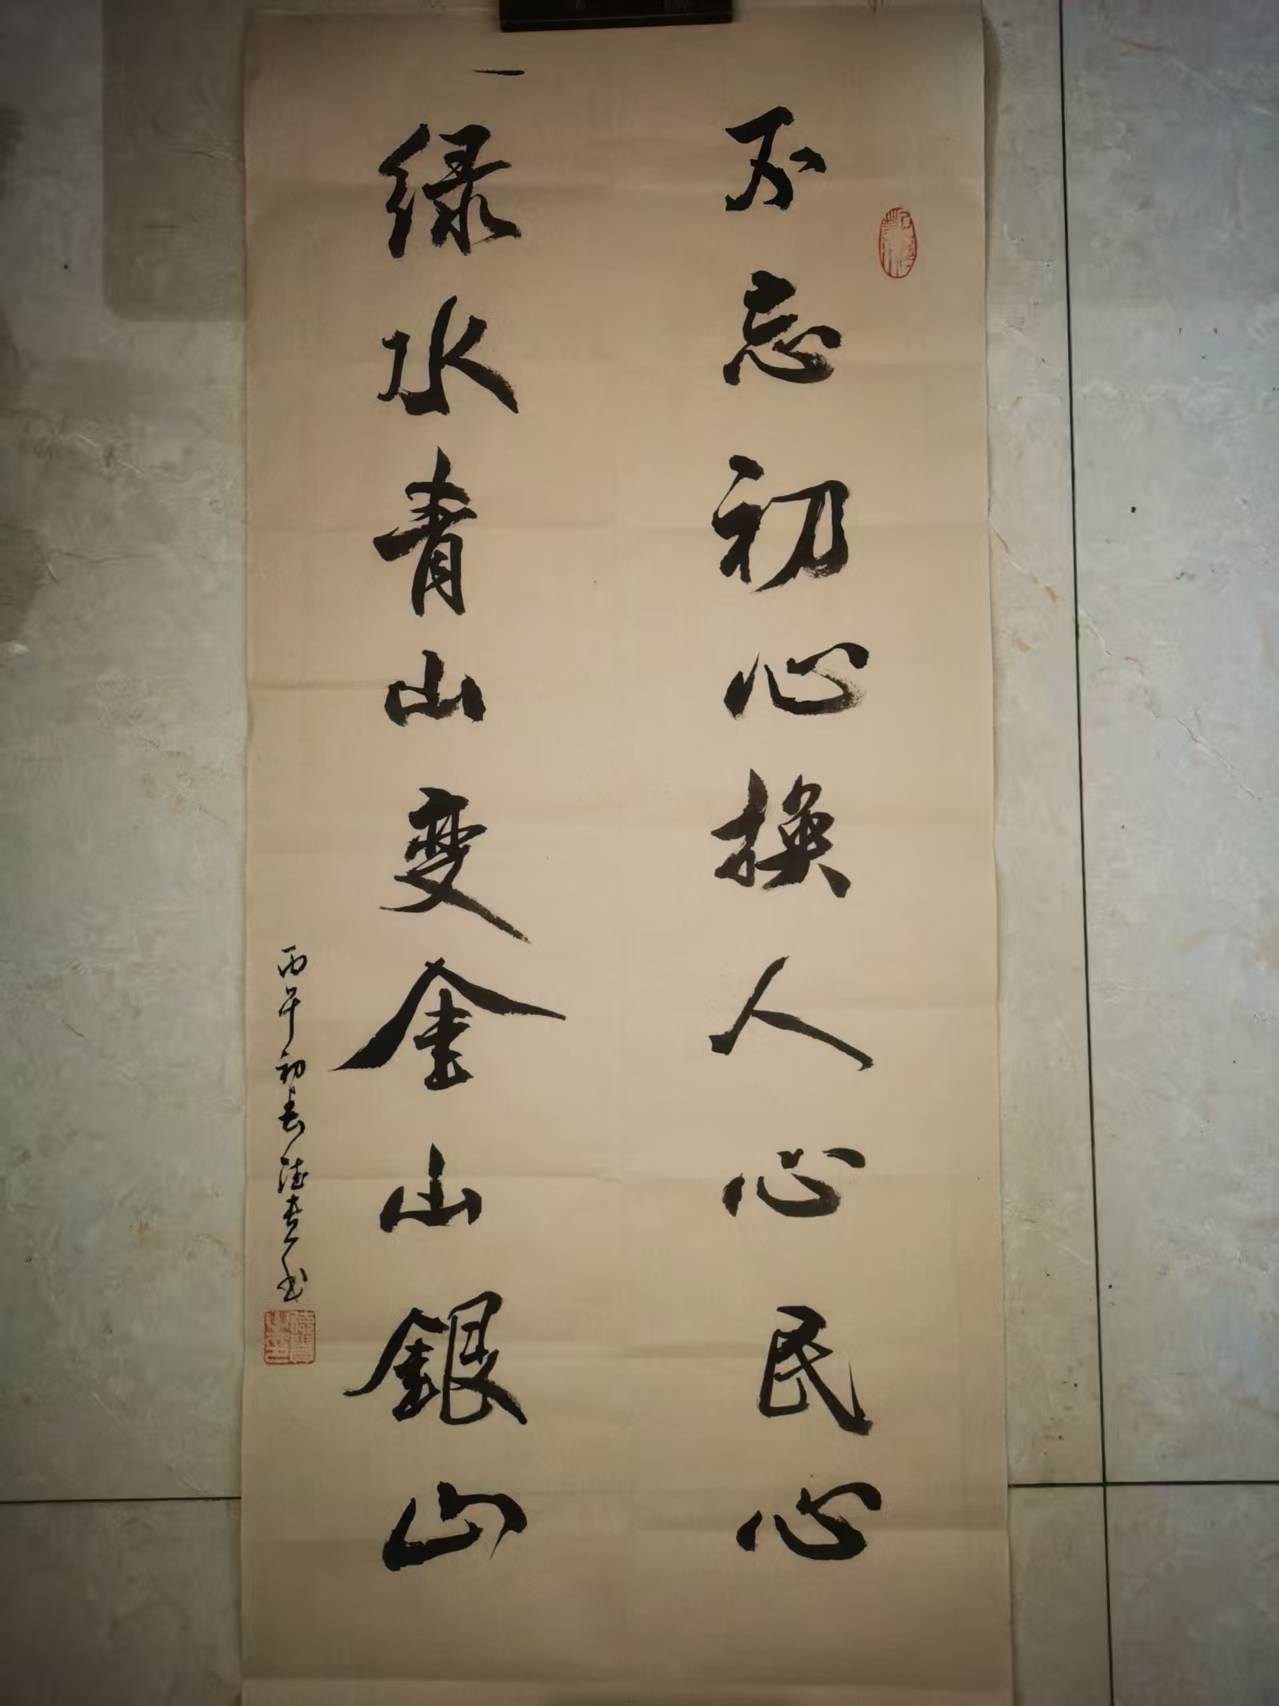 不忘初心换人心民心
绿水青山变金山银山
丙午初春德贵书